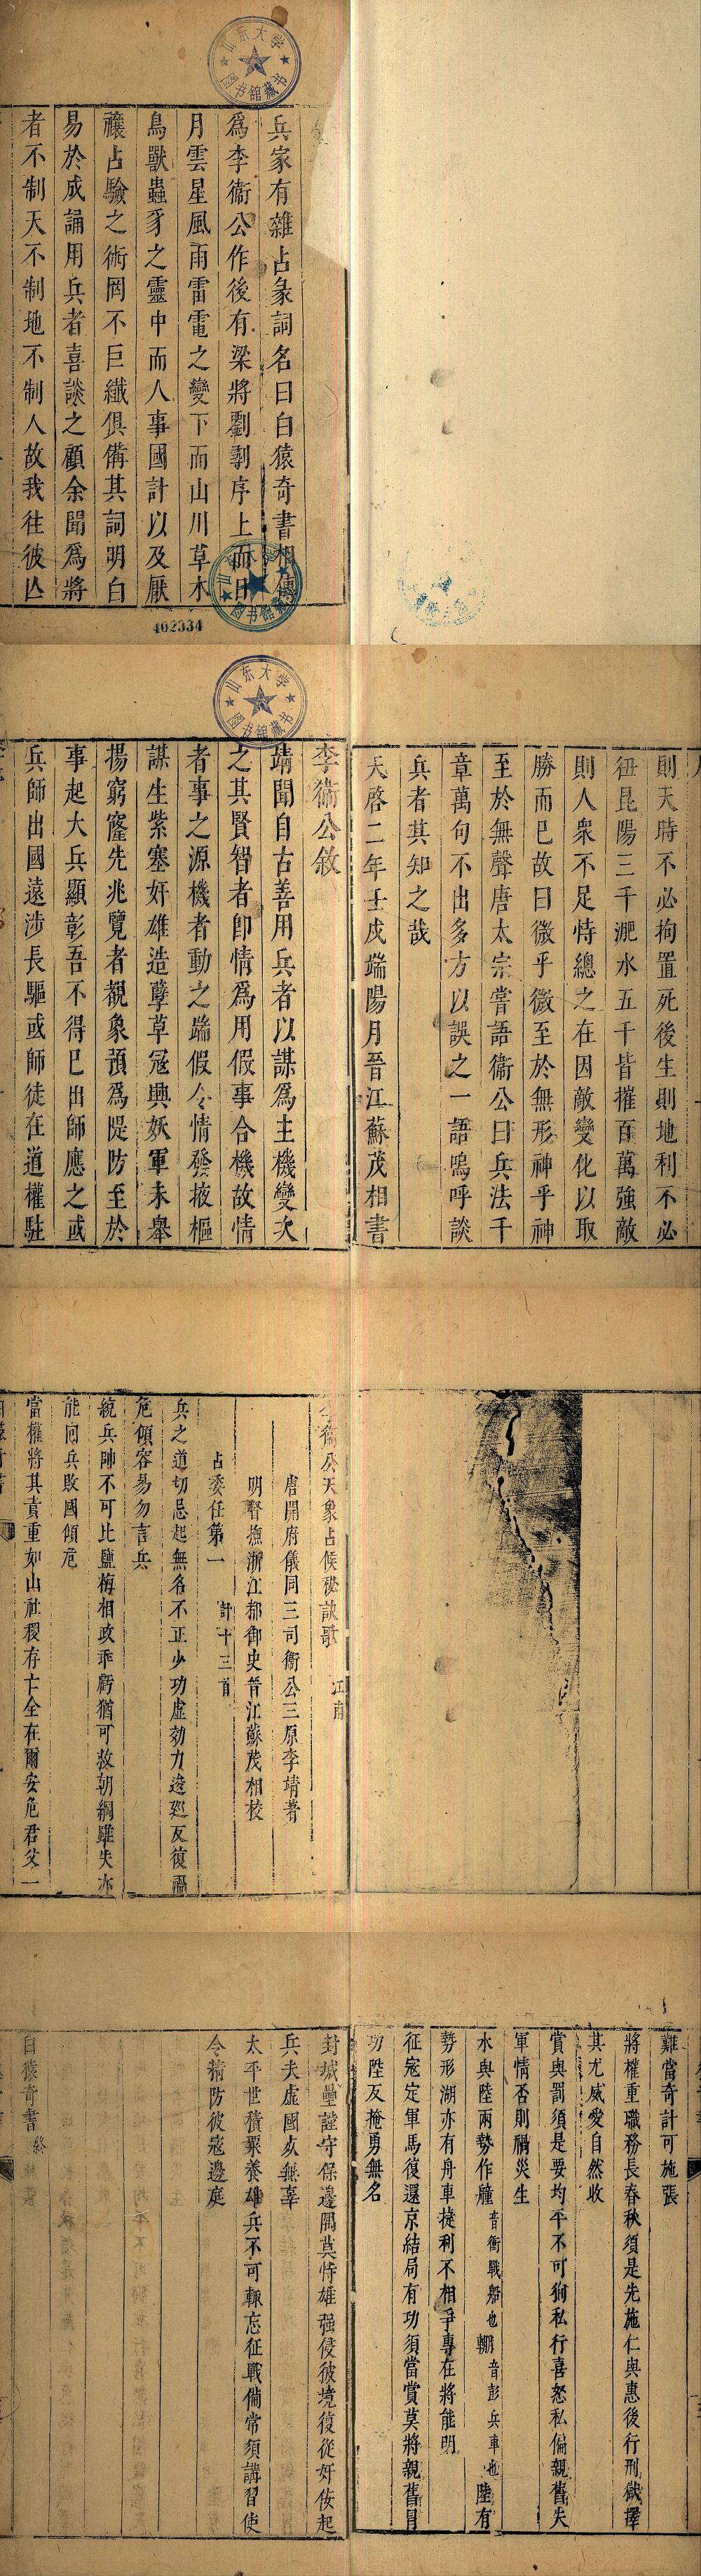 山东大学
图书馆藏书
兵家有雜占彖詞名曰白猿奇書相傳
爲李衞公作後有梁將劉鄩序上而日
月雲星風雨雷電之變下而山川草木
鳥獸蟲豸之靈中而人事國計以及厭
禳占驗之術罔不巨纖俱備其詞明白
易於成誦用兵者喜談之顧余聞爲將
者不制天不制地不制人故我往彼亾
山东大学
图书馆藏书
402334
則天時不必拘置死後生則地利不必
徂昆陽三千淝水五千皆摧百萬強敵
則人衆不足恃總之在因敵變化以取
勝而已故曰微乎微至於無形神乎神
至於無聲唐太宗嘗語衞公曰兵法千
章萬句不出多方以誤之一語嗚呼談
兵者其知之哉
天啓二年壬戌端陽月晉江蘇茂相書
山东大学
图书馆藏书
李衞公敘
靖聞自古善用兵者以謀爲主機變次
之其賢智者卽情爲用假事合機故情
者事之源機者動之端假令情發掖樞
謀生紫塞奸雄造孽草寇興妖軍未舉
揚窮窿先兆覽者觀象預爲隄防至於
事起大兵顯彰吾不得已出師應之或
兵師出國遠涉長驅或師徒在道權駐
李衞公天象占候秘訣歌 江南
唐開府儀同三司衞公三原李靖著
明督撫浙江都御史晉江蘇茂相校
占委任第一 計十三首
兵之道切忌起無名不正少功虛効力逡廵反復禍
危傾容易勿言兵
統兵帥不可比鹽梅相政乖虧猶可救朝綱雖失亦
能囘兵敗國傾危
當權將其責重如山社稷存亡全在爾安危君父一
難當奇計可施張
將權重職務長春秋須是先施仁與惠後行刑獄擇
其尤威愛自然收
賞與罰須是要均平不可狥私行喜怒私偏親舊失
軍情否則禍災生
水與陸兩勢作艟音衝戰船也輣音彭兵車也陸有
勢形湖亦有舟車捷利不相爭專在將能明
征寇定軍馬復還京結局有功須當賞莫將親舊冒
功陞反掩勇無名
封城壘謹守保邊隅莫恃雄強侵彼境復從奸佞起
兵夫虛國必無辜
太平世積粟養雄兵不可輒忘征戰備常須講習使
令精防彼寇邊庭
白猿奇書終